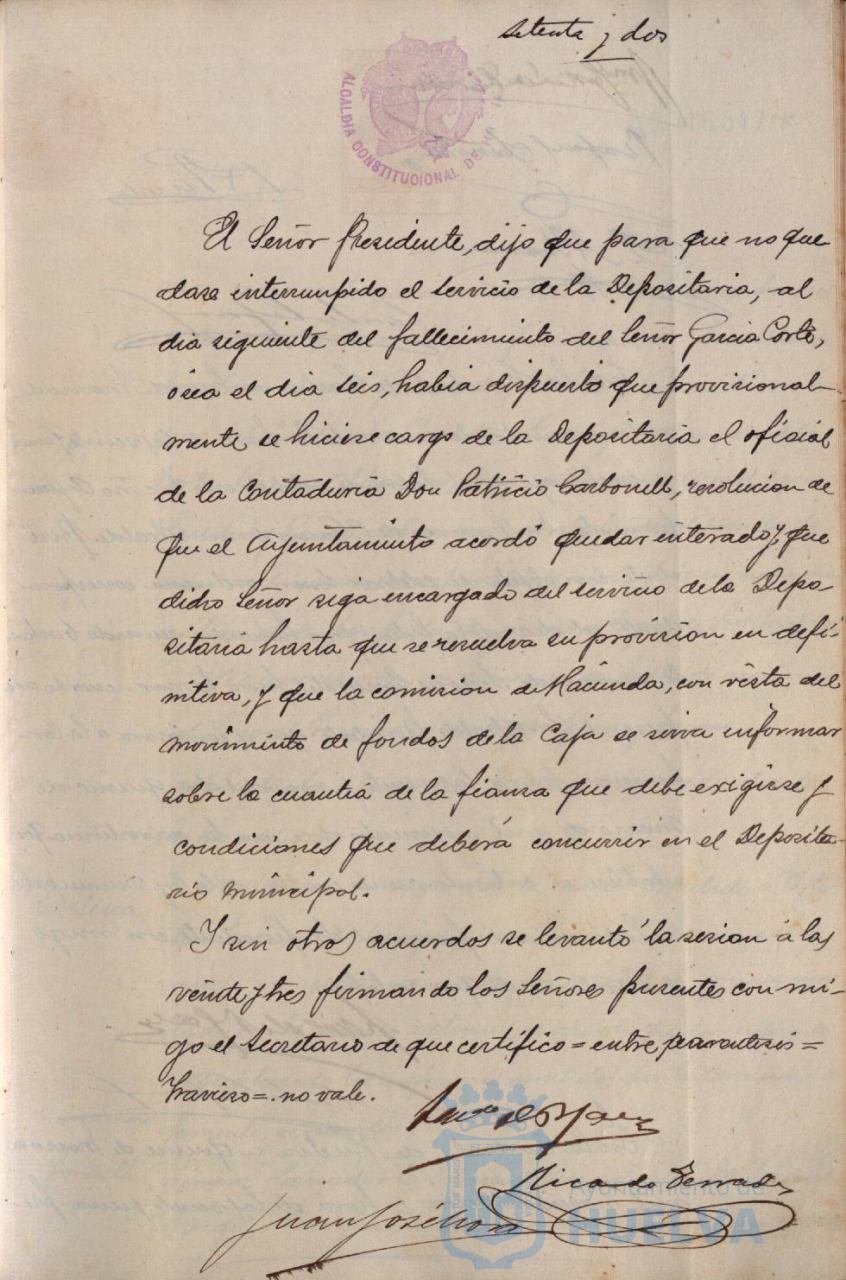 Setenta y dos
ALCALDIA CONSTITUCIONAL DE
El Señor Presidente, dijo que para que no que
dase interrumpido el servicio de la Depositaria, al
dia siguiente del fallecimiento del Señor Garcia Cortés,
ósea el dia seis, habia dispuesto que provisional-
mente se hiciese cargo de la Depositaria el oficial
de la Contaduria Don Patricio Carbonell, resolucion de
que el Ayuntamiento acordó quedar enterado y que
dicho Señor siga encargado del servicio de la Depo
sitaria hasta que se resuelva su provision en defi-
nitiva, y que la comision de Hacienda, con vista del
movimiento de fondos de la Caja se sirva informar
sobre la cuantia de la fianza que debe exigirse y
condiciones que deberá concurrir en el Deposita-
rio Municipal.
Y sin otros acuerdos se levantó la sesion á las
veinte y tres firmando los Señores presentes con mi-
go el Secretario de que certifico = entre parentesis =
travieso = no vale.
Juan José
Ayuntamiento de
HUELVA